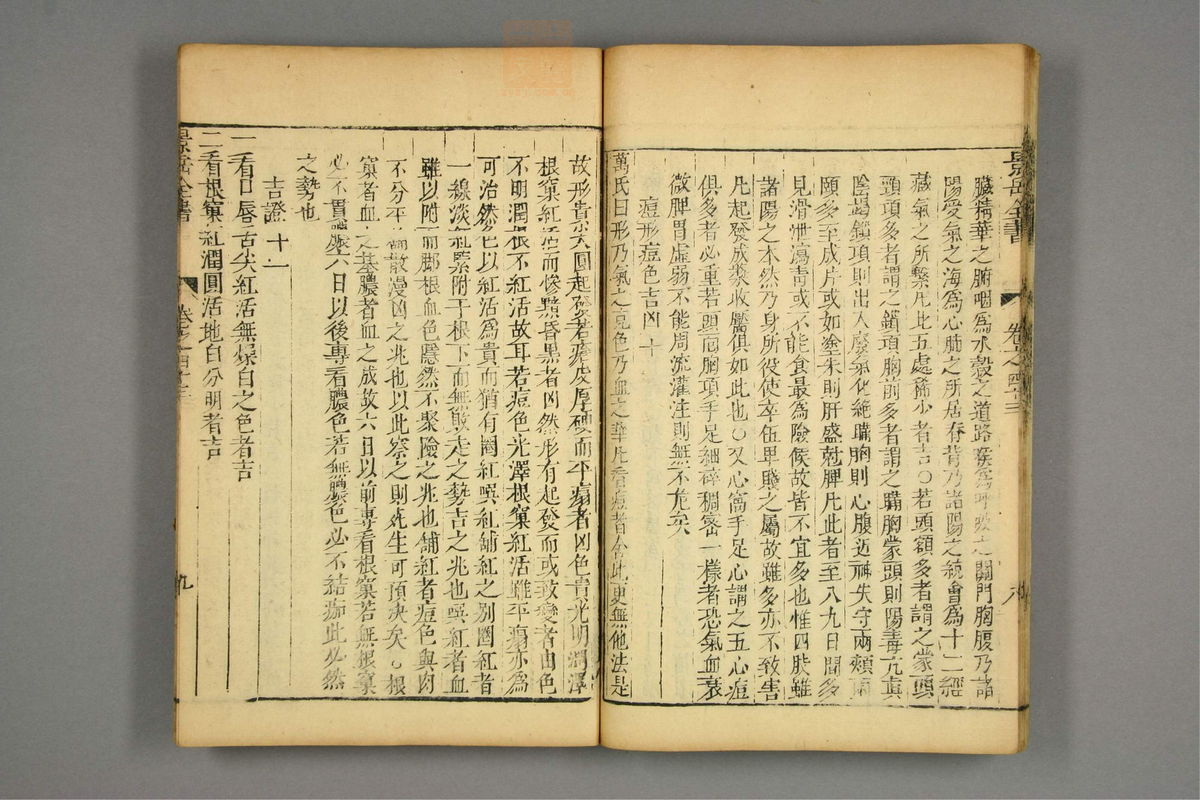 景岳全書
卷之四十三
八
臟精華之腑咽為水穀之道路喉為呼吸之關門胸腹乃諸
陽受氣之海為心肺之所居存背乃諸陽之統會為十二經
臟氣之所繫凡此五處稀少者吉○若頭額多者謂之蒙頭
頸項多者謂之鎖項胸前多者謂之瞞胸蒙頭則陽毒亢
陰竭鎖項則出入廢氣化絕瞞胸則心腹近神失守兩頰兩
頤多至成片或如塗朱則肝盛剋脾凡此者至八九日間多
見滑泄瀉青或不能食最為險候故皆不宜多也惟四肢雖
諸陽之本然乃身所役使卒伍卑賤之屬故雖多亦不致害
凡起發成漿收靨俱如此也○又心窩手足心謂之五心痘
俱多者必重若頭面胸項手足細碎稠密一樣者恐氣血衰
微脾胃虛弱不能周流灌注則無不危矣
痘形痘色吉凶 十
萬氏曰形乃氣之克色乃血之華凡看痘者會此更無他法是
故形貴尖圓起發若瘡皮厚硬而平塌者凶色貴光明潤澤
根窠紅活而慘黯昏黑者凶然形有起發而或致變者由色
不明潤根不紅活故耳若痘色光澤根窠紅活雖平塌亦為
可治然色以紅活為貴而猶有圈紅噀紅鋪紅之別圈紅者
一線淡紅緊附于根下而無散走之勢吉之兆也噀紅者血
雖以附而腳根血色隱然不聚險之兆也鋪紅者痘色與肉
不分平鋪散漫凶之兆也以此察之則死生可預決矣○根
窠者血之基膿者血之成故六日以前專看根窠若無根窠
必不貫膿六日以後專看膿色若無膿色必不結痂此必然
之勢也
吉證 十一
一看口唇舌尖紅活無燥白之色者吉
二看根窠紅潤圓活地白分明者吉
景岳全書
卷之四十三
九